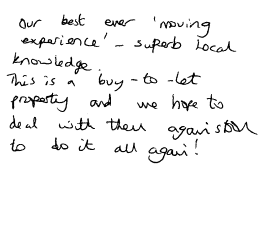 Our best ever 'moving
experience' - superb local
knowledge.
This is a buy-to-let
property and we hope to
deal with them again soon
to do it all again!